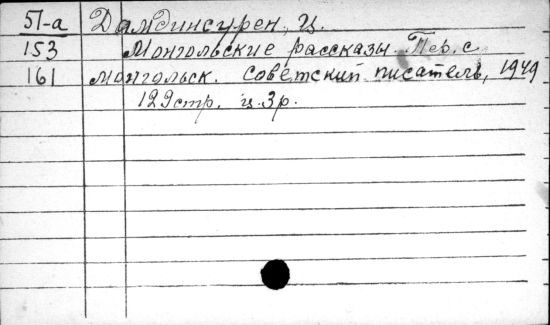 51-а Дамдинсурен, Ц.
153 Монгольские рассказы. Пер. с
161 монгольск. Советский писатель, 1949
129 стр. ц. 3 р.